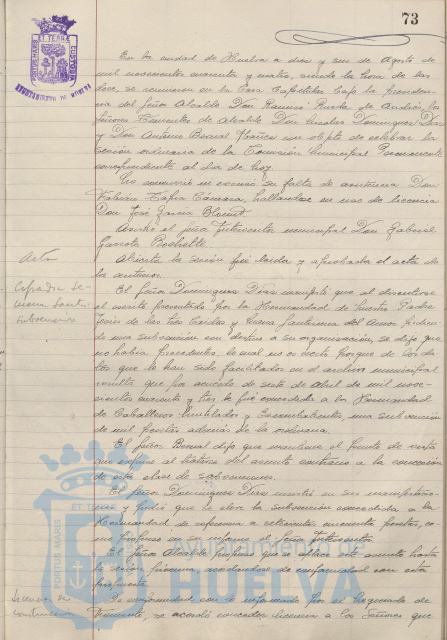 73
PORTUS MARIS ET TERRÆ CUSTODIA
AYUNTAMIENTO DE HUELVA
En la ciudad de Huelva a diez y seis de Agosto de
mil novecientos cuarenta y cuatro, siendo la hora de las
doce, se reunieron en la Casa Capitular bajo la presiden-
cia del Señor Alcalde Don Ramiro Rueda de Andrés, los
Señores Tenientes de Alcalde Don Domingues Dias
y Don Antonio Bernal Ibáñez con objeto de celebrar la
sesión ordinaria de la Comisión Municipal Permanente
correspondiente al día de hoy.
No concurrió ni excusó su falta de asistencia Don
Fabian Tapia Cámara, hallándose en uso de licencia
Don José Garcia
Asiste el Interventor municipal Don Gabriel
Garrote
Acta
Abierta la sesión fué leida y aprobada el acta de
la anterior.
Cofradia Se-
mana Santa
Subvención
El Señor Domingues Dias manifestó que al discutirse
el escrito presentado por la Hermandad de Nuestro Padre
Jesús de las tres Caidas y Maria Santisima del Amor pidien-
do una subvención con destino a su organización, se dijo que
no habia precedentes, lo cual no es exacto porque de los da-
tos que le han sido facilitados en el archivo municipal
resulta que por acuerdo de siete de Abril de mil nove-
cientos cuarenta y tres le fué concedida a la Hermandad
de Caballeros Mutilados y Excombatientes, una subvención
de mil pesetas además de la ordinaria.
El Señor Bernal dijo que mantiene el punto de vista
que expuso al tratarse del asunto contrario a la concesión
de esta clase de subvenciones.
El Señor Domingues Dias insistió en sus manifestacio-
nes y pidió que se eleve la subvención concedida a la
Hermandad de referencia a setecientas cincuenta pesetas, co-
mo propone en su informe el Señor Interventor.
El Señor Alcalde propuso que se aplace este asunto hasta
la sesión próxima, acordándose de conformidad con esta
propuesta.
Licencia de
De conformidad con lo informado por el Negociado de
Fomento, se acordó conceder licencia a los Señores que
PORTUS MARIS ET TERRÆ CUSTODIA
Ayuntamiento de
HUELVA